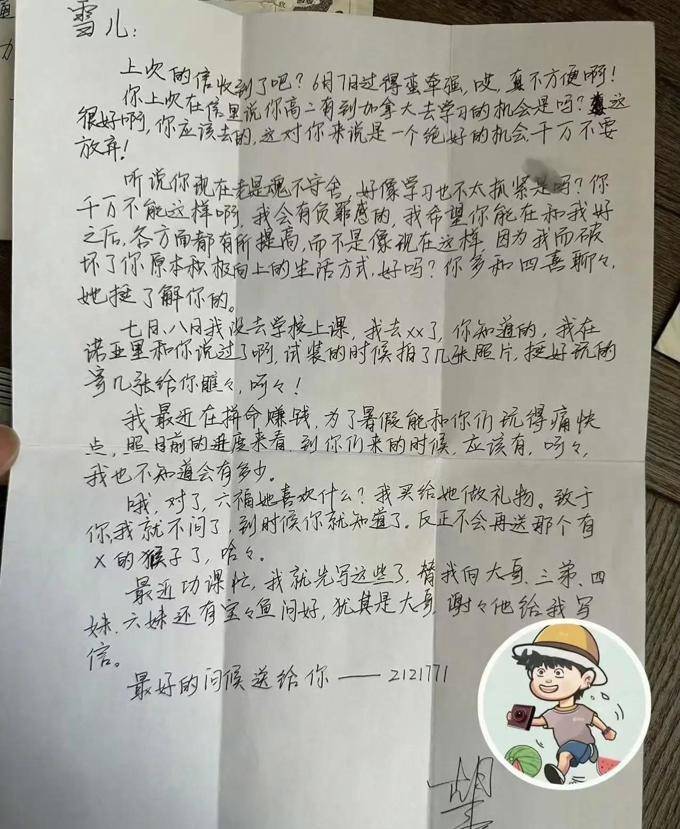 雪儿：
上次的信收到了吧？6月7日过得蛮牵强，哎，真不方便啊！
你上次在信里说你高二有到加拿大去学习的机会是吗？这
很好啊，你应该去的，这对你来说是一个绝好的机会，千万不要
放弃！
听说你现在老是魂不守舍，好像学习也不太抓紧是吗？你
千万不能这样啊，我会有负罪感的，我希望你能在和我好
之后，各方面都有所提高，而不是像现在这样，因为我而破
坏了你原本积极向上的生活方式，好吗？你多和四喜聊々，
她挺了解你的。
七日、八日我没去学校上课，我去xx了，你知道的，我在
诺亚里和你说过了啊，试装的时候拍了几张照片，挺好玩的
寄几张给你瞧々，呵々！
我最近在拼命赚钱，为了暑假能和你们玩得痛快
点，照目前的进度来看，到你们来的时候，应该有，呵々，
我也不知道会有多少。
哦，对了，六福她喜欢什么？我买给她做礼物。致于
你我就不问了，到时候你就知道了，反正不会再送那个有
X的猴子了，哈々。
最近功课忙，我就先写这些了，替我向大哥、三弟、四
妹、六妹还有宝々鱼问好，犹其是大哥，谢々他给我写
信。
最好的问候送给你——2121771
胡